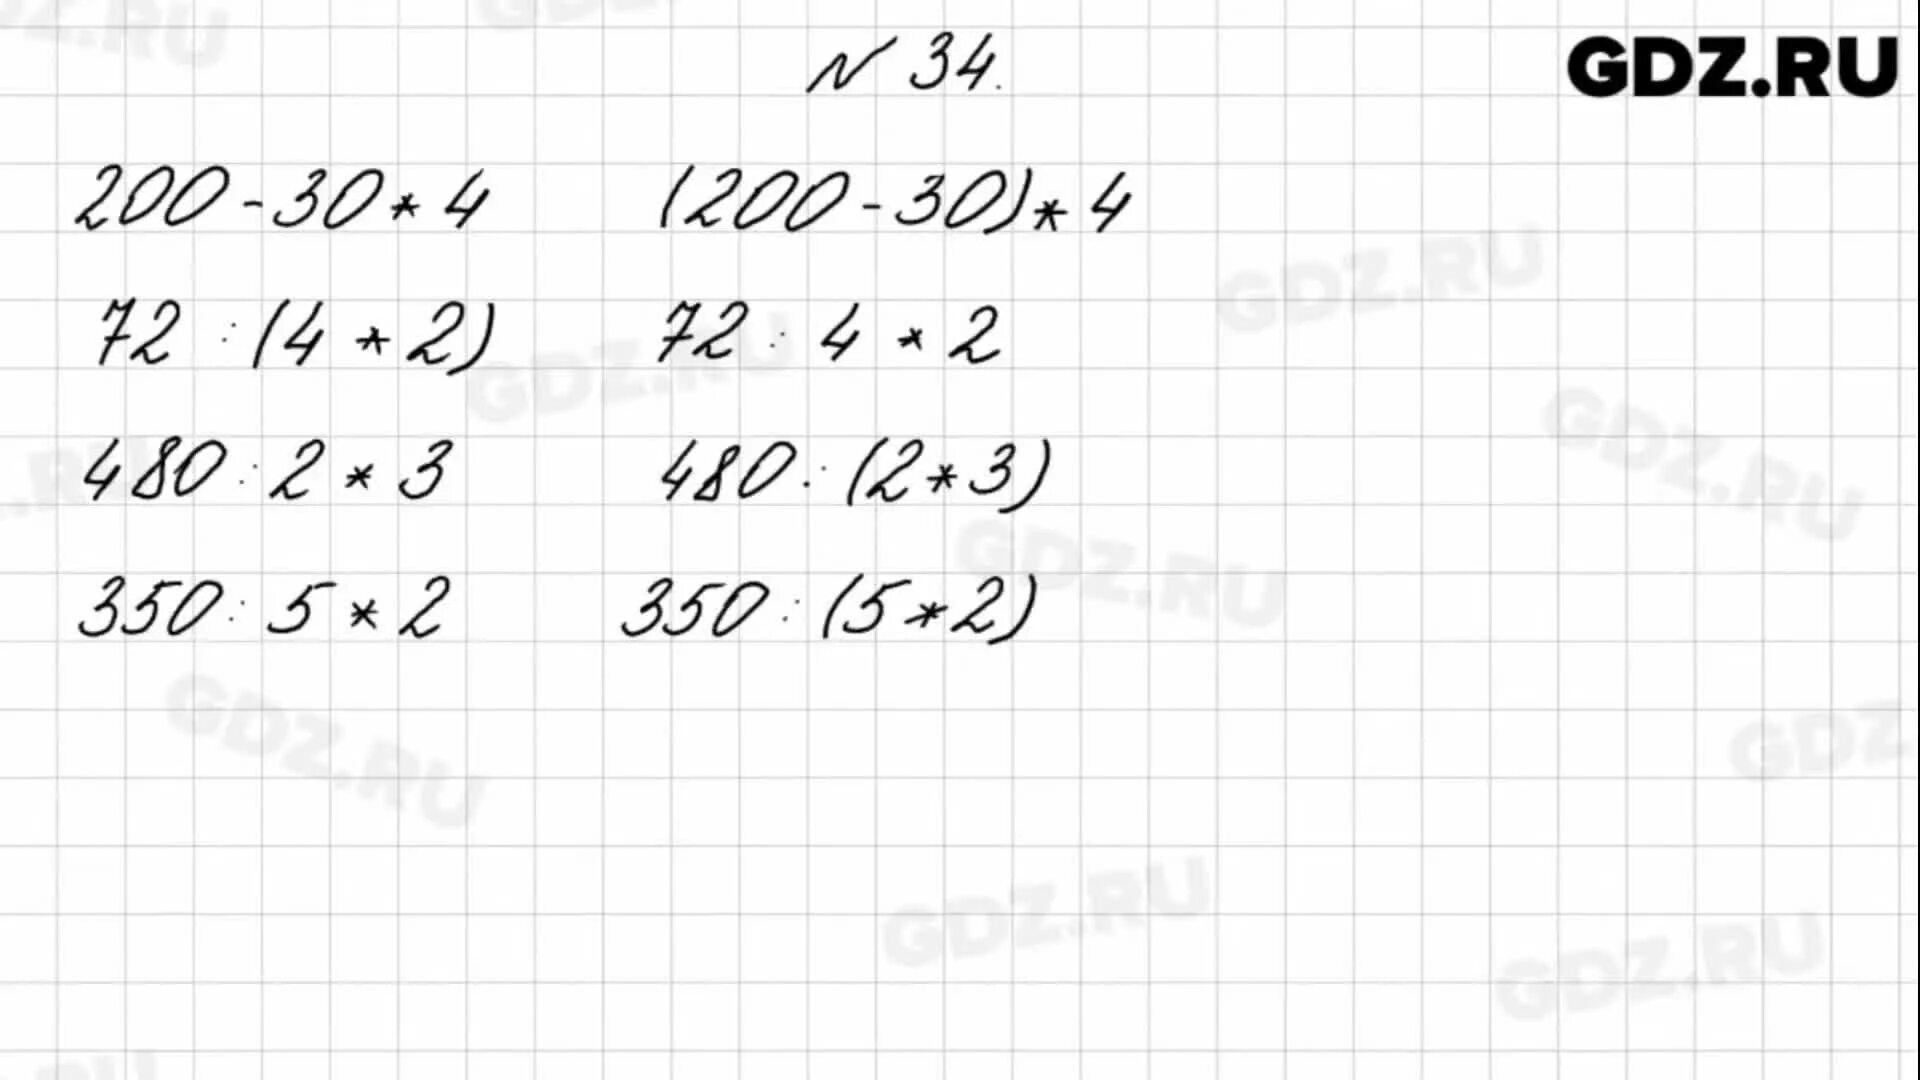 N 34.
GDZ.RU
200 - 30 * 4 (200 - 30) * 4
72 : (4 * 2) 72 : 4 * 2
480 : 2 * 3 480 : (2 * 3)
350 : 5 * 2 350 : (5 * 2)